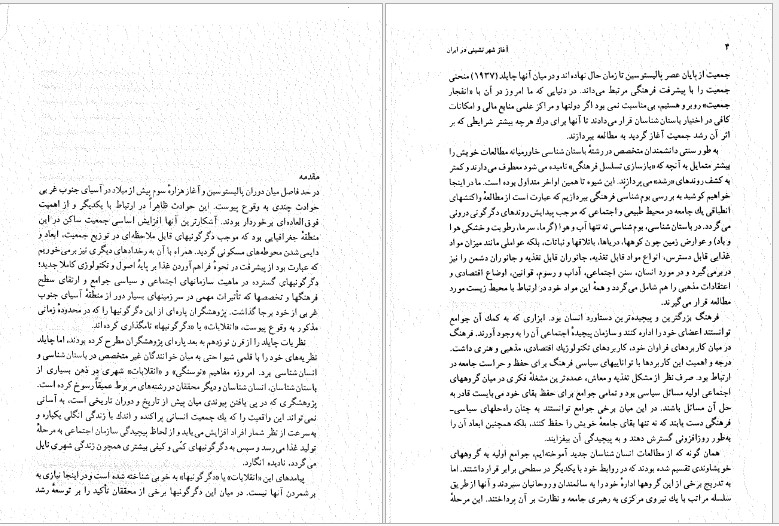 مقدمه
در حد فاصل میان دوران پالیستوسین و آغاز هزارهٔ سوم پیش از میلاد در آسیای جنوب غربی
حوادث چندی به وقوع پیوست. این حوادث ظاهراً در ارتباط با یکدیگر و از اهمیت
فوق‌العاده‌ای برخوردار بودند. آشکارترین آنها افزایش اساسی جمعیت ساکن در این
منطقهٔ جغرافیایی بود که موجب دگرگونیهای قابل ملاحظه‌ای در توزیع جمعیت، ابعاد و
دایمی شدن محوطه‌های مسکونی گردید. همراه با آن به رخدادهای دیگری نیز برمی‌خوریم
که عبارت بود از پیشرفت در نحوهٔ فراهم آوردن غذا بر پایهٔ اصول و تکنولوژی کاملا جدید؛
دگرگونیهای گسترده در ماهیت سازمانهای اجتماعی و سیاسی جوامع و ارتقای سطح
فرهنگها و تخصصها که تأثیرات مهمی در سرزمینهای بسیار دور از منطقهٔ آسیای جنوب
غربی از خود برجا گذاشت. پژوهشگران پاره‌ای از این دگرگونیها را که در محدودهٔ زمانی
مذکور به وقوع پیوست، «انقلابات» یا «دگرگونیها» نامگذاری کرده‌اند.
نظریات چایلد را از قرن نوزدهم به بعد پاره‌ای پژوهشگران مطرح کرده بودند، اما چایلد
نظریه‌های خود را با قلمی شیوا حتی به میان خوانندگان غیر متخصص در باستان‌شناسی و
انسان شناسی برد. امروزه مفاهیم «نوسنگی» و «انقلابات» شهری در ذهن بسیاری از
باستان‌شناسان، انسان شناسان و دیگر محققان در رشته‌های مربوط عمیقاً رسوخ کرده است.
پژوهشگری که در پی یافتن پیوندی میان پیش از تاریخ و دوران تاریخی است، به آسانی
نمی‌تواند این واقعیت را که یک جمعیت انسانی پراکنده و اندک با زندگی انگلی یکباره و
به‌سرعت از نظر شمار افراد افزایش می‌یابد و از لحاظ پیچیدگی سازمان اجتماعی به مرحلهٔ
تولید غذا می‌رسد و سپس به دگرگونیهای کمّی و کیفی بیشتری همچون زندگی شهری نایل
می‌گردد، نادیده انگارد.
پیامدهای این «انقلابات» یا «دگرگونیها» به خوبی شناخته شده است و در اینجا نیازی به
برشمردن آنها نیست. در میان این دگرگونیها برخی از محققان تأکید را بر توسعهٔ رشد
۴
آغاز شهر نشینی در ایران
جمعیت از پایان عصر پالیستوسین تا زمان حال نهاده‌اند و در میان آنها چایلد (۱۹۳۷) منحنی
جمعیت را با پیشرفت فرهنگی مرتبط می‌داند. در دنیایی که ما امروز در آن با «انفجار
جمعیت» روبرو هستیم، بی‌مناسبت نمی بود اگر دولتها و مراکز علمی منابع مالی و امکانات
کافی در اختیار باستان شناسان قرار می‌دادند تا آنها برای درک هرچه بیشتر شرایطی که بر
اثر آن رشد جمعیت آغاز گردید به مطالعه بپردازند.
به طور سنتی دانشمندان متخصص در رشتهٔ باستان شناسی خاورمیانه مطالعات خویش را
بیشتر متمایل به آنچه که «بازسازی تسلسل فرهنگی» نامیده می‌شود معطوف می‌دارند و کمتر
به کشف روندهای «رشد» می‌پردازند. این شیوه تا همین اواخر متداول بوده است. ما در اینجا
خواهیم کوشید به بررسی بوم شناسی فرهنگی بپردازیم که عبارت است از مطالعهٔ واکنشهای
انطباقی یک جامعه در محیط طبیعی و اجتماعی که موجب پیدایش روندهای دگرگونی درونی
می‌گردد. در باستان‌شناسی، بوم شناسی نه تنها آب و هوا (گرما، سرما، رطوبت و خشکی هوا
و باد) و عوارض زمین چون کوهها، دریاها، باتلاقها و نباتات، بلکه عواملی مانند میزان مواد
غذایی قابل دسترس، انواع مواد قابل تغذیه، جانوران قابل تغذیه و جانوران دشمن را نیز
دربر می‌گیرد و در مورد انسان، سنن اجتماعی، آداب و رسوم، قوانین، اوضاع اقتصادی و
اعتقادات مذهبی را هم شامل می‌گردد و همهٔ این مواد خود در ارتباط با محیط زیست مورد
مطالعه قرار می‌گیرند.
فرهنگ بزرگترین و پیچیده‌ترین دستاورد انسان بود. ابزاری که به کمک آن جوامع
توانستند اعضای خود را اداره کنند و سازمان پیچیدهٔ اجتماعی آن را به وجود آورند. فرهنگ
در میان کاربردهای فراوان خود، کاربردهای تکنولوژیک اقتصادی، مذهبی و هنری داشت.
درجه و اهمیت این کاربردها با تواناییهای سیاسی فرهنگ برای حفظ و حراست جامعه در
ارتباط بود. صرف نظر از مشکل تغذیه و معاش، عمده‌ترین مشغلهٔ فکری در میان گروههای
اجتماعی اولیه مسائل سیاسی بود و تمامی جوامع برای حفظ بقای خود می‌بایست قادر به
حل آن مسائل باشند. در این میان برخی جوامع توانستند به چنان راه‌حلهای سیاسی-
فرهنگی دست یابند که نه تنها بقای جامعهٔ خویش را حفظ کنند، بلکه همچنین ابعاد آن را
به‌طور روزافزونی گسترش دهند و به پیچیدگی آن بیفزایند.
همان گونه که از مطالعات انسان شناسان جدید آموخته‌ایم، جوامع اولیه به گروههای
خویشاوندی تقسیم شده بودند که در روابط خود با یکدیگر در سطحی برابر قرار داشتند. اما
به تدریج برخی از این گروهها ادارهٔ خود را به سالمندان و روحانیان سپردند و آنها از طریق
سلسله مراتب با یک نیروی مرکزی به رهبری جامعه و نظارت بر آن پرداختند. این مرحلهٔ